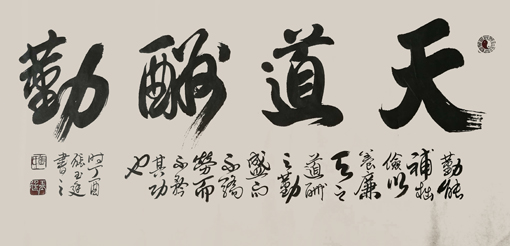 天道酬勤
勤能
補拙
儉以
養廉
天之
道酬
之勤
盛而
不驕
勞而
不矜
其功
也
時丁酉
張玉
書之